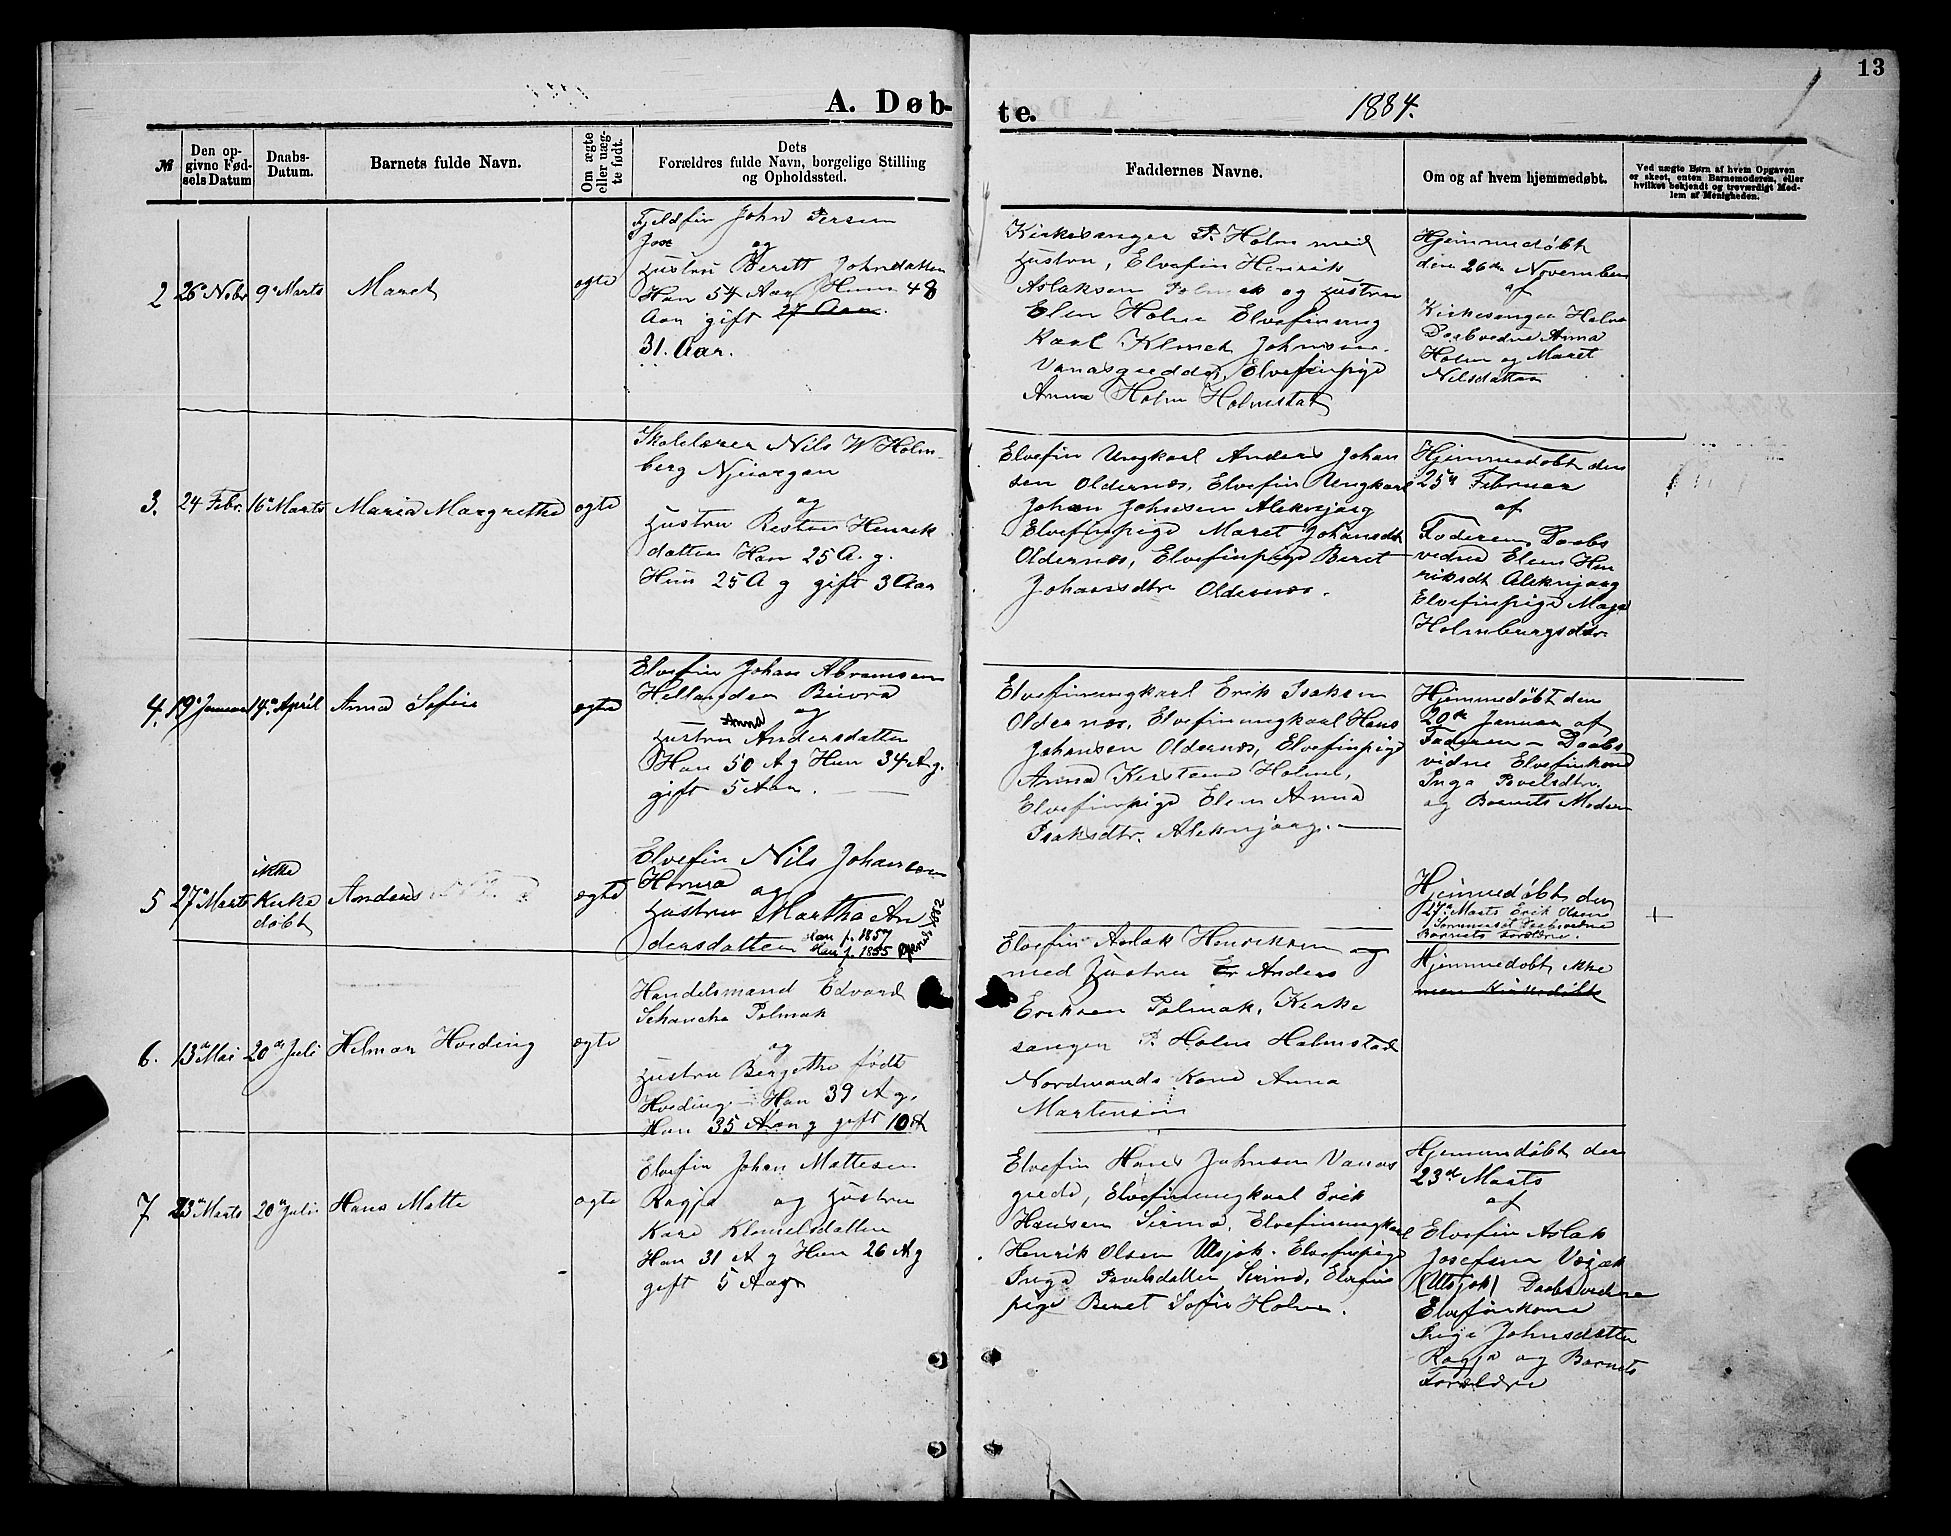 13
A. Døb-
te.
1884.
№
Den op-
givne Fød-
sels Datum
Daabs-
Datum.
Barnets fulde Navn.
Om ægte
eller uæg-
te født.
Dets
Forældres fulde Navn, borgelige Stilling
og Opholdssted.
Faddernes Navne.
Om og af hvem hjemmedøbt.
Ved uægte Børn af hvem Opgaven
er skeet, enten Barnemoderen, eller
hvilket bekjendt og troværdigt Med-
lem af Menigheden.
2
26 Nobr
9 Marts
Maret
ægte
Fjeldfin John Persen
og
Hustru Berett Johnsdatter
Han 54 Aar Hun 48
Aar gift 27 Aar.
31. Aar.
Kirkesanger P. Holm med
Hustru, Elvefin Henrik
Aslaksen Polmak og Hustru
Elen Holm Elvefinung
karl Klemet Johnsen
Elvefinpige
Anna Holm Holmstad
Hjemmedøbt
den 26de November
af
Kirkesanger Holm
Daabvedne Anna
Holm og Maret
Nilsdatter
3.
24 Febr.
16 Marts
Maria Margrethe
ægte
Skolelærer Nils W Holm-
berg
og
Hustru Henrik
datter Han 25 A. g.
Hun 25 A g gift 3 Aar
Elvefin Ungkarl Anders Johan
sen Oldernæs, Elvefin Ungkarl
Johan Johnsen Aleknjarg
Elvefinpige Maret Johansdt
Oldernæs, Elvefinpige Beret
Johansdtr Oldernæs.
Hjemmedøbt den
25 Februar
af
Faderen Daabs
vedne Elen Hen
riksdt Aleknjarg
Elvefinpige
Holmbergsdtr
4.
19 Januar
14 April
Anna Sofie
ægte
Elvefin Johan Abramsen
og
Anna
Hustru Andersdatter
Han 50 A g Hun 34 A g.
gift 5 Aar.
Elvefinungkarl Erik Isaksen
Oldernæs, Elvefinungkarl Hans
Johansen Oldernæs, Elvefinpige
Anna Kirstene Holm,
Elvefinpige Elen Anna
Isaksdtr. Aleknjarg.
Hjemmedøbt den
20de Januar af
Faderen – Daabs
vidne Elvefinkone
Inga Povelsdtr.
og Barnets Moder
5
27 Marts
ikke
Kirke
døbt
Anders
ægte
Elvefin Nils Johansen
og
Hustru Martha An
dersdatter
Han f. 1857
Hun f. 1855
1882
Hjemmedøbt den
27 Marts Erik Olsen
Barnets Forældre.
6.
13 Mai
20de Juli
Helmar Hveding
ægte
Handelsmand Edvard
Schancke Polmak
og
Hustru Bergethe født
Hveding – Han 39 A g.
Hun 35 Aar g gift 10 A
Elvefin Aslak Henriksen og
med Hustru Er Anders
Eriksen Polmak, Kirke
sanger P. Holm Holmstad
Nordmands Kone Anna
Martensen
Hjemmedøbt ikke
7
23 Marts
20de Juli.
Hans Matte
ægte
Elvefin Johan Mattesen
Ragja og Hustru
Klemetsdatter
Han 31 A g Hun 26 A g
gift 5 Aar
Elvefin Hans Johnsen Vanas
grede, Elvefinungkarl Erik
Hansen Sirma, Elvefinungkarl
Henrik Olsen Utsjok. Elvefinpige
Inga Povelsdatter Sirma, Elvefin
pige Beret Sofie Holm.
Hjemmedøbt den
23de Marts
af
Elvefin Aslak
Josefsen
(Utsjok) Daabsvedne
Elvefinkone
Inga Johnsdatter
Ragja og Barnets
Forældre